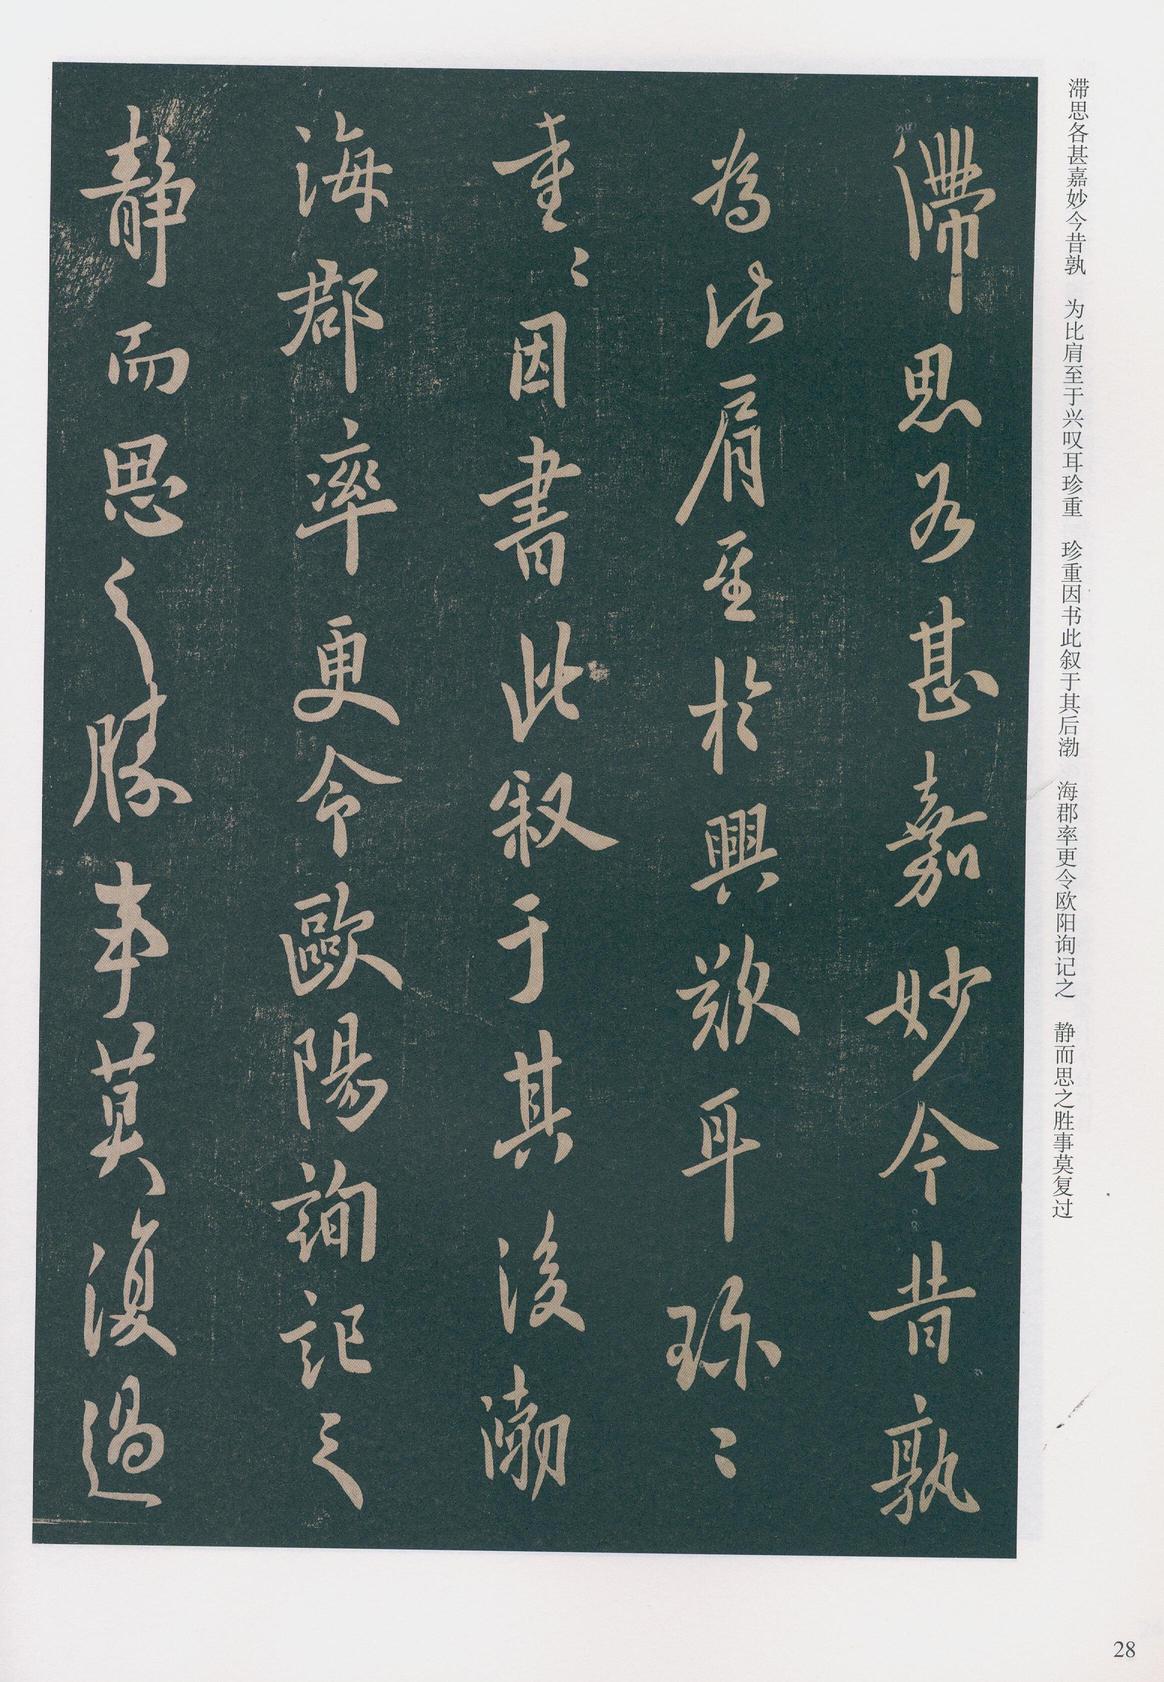 滞思各甚嘉妙今昔孰　为比肩至于兴叹耳珍重　珍重因书此叙于其后渤　海郡率更令欧阳询记之　静而思之胜事莫复过
滯思各甚嘉妙今昔孰
為比肩至於興歎耳珍〻
重〻因書此叙于其後渤
海郡率更令歐陽詢記之
靜而思之勝事莫復過
28